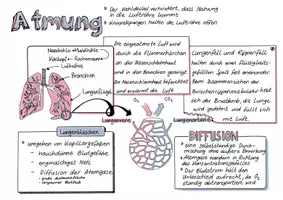 Atmung
• Der Kehldeckel verhindert, dass Nahrung
in die Luftröhre kommt
• Knorpelspangen halten die Luftröhre offen
Nasenhöhle + Mundhöhle
Kehlkopf + Rachenraum
Luftröhre
Bronchien
Lungenflügel
Die eingeatmete Luft wird
durch die Flimmerhärchen
an der Nasenschleimhaut
und in den Bronchien gereinigt.
Die Nasenschleimhaut befeuchtet
und erwärmt die Luft.
Lungenfell und Rippenfell
haften durch einen flüssigkeits-
gefüllten Spalt fest aneinander.
Beim Zusammenziehen der
Zwischenrippenmuskulatur hebt
sich der Brustkorb, die Lunge
wird gedehnt und füllt
sich mit Luft.
O₂
CO₂
Lungenvene
Lungenarterie
Lungenbläschen
• umgeben von Kapillargefäßen
- hauchdünne Blutgefäße
- engmaschiges Netz
- Diffusion der Atemgase
DIFFUSION
• eine selbstständige Durch-
mischung ohne äußere Einwirkung
• Atemgase wandern in Richtung
des Konzentrationsgefälles
• Der Blutstrom hält den
Unterschied aufrecht, da O₂
ständig abtransportiert wird